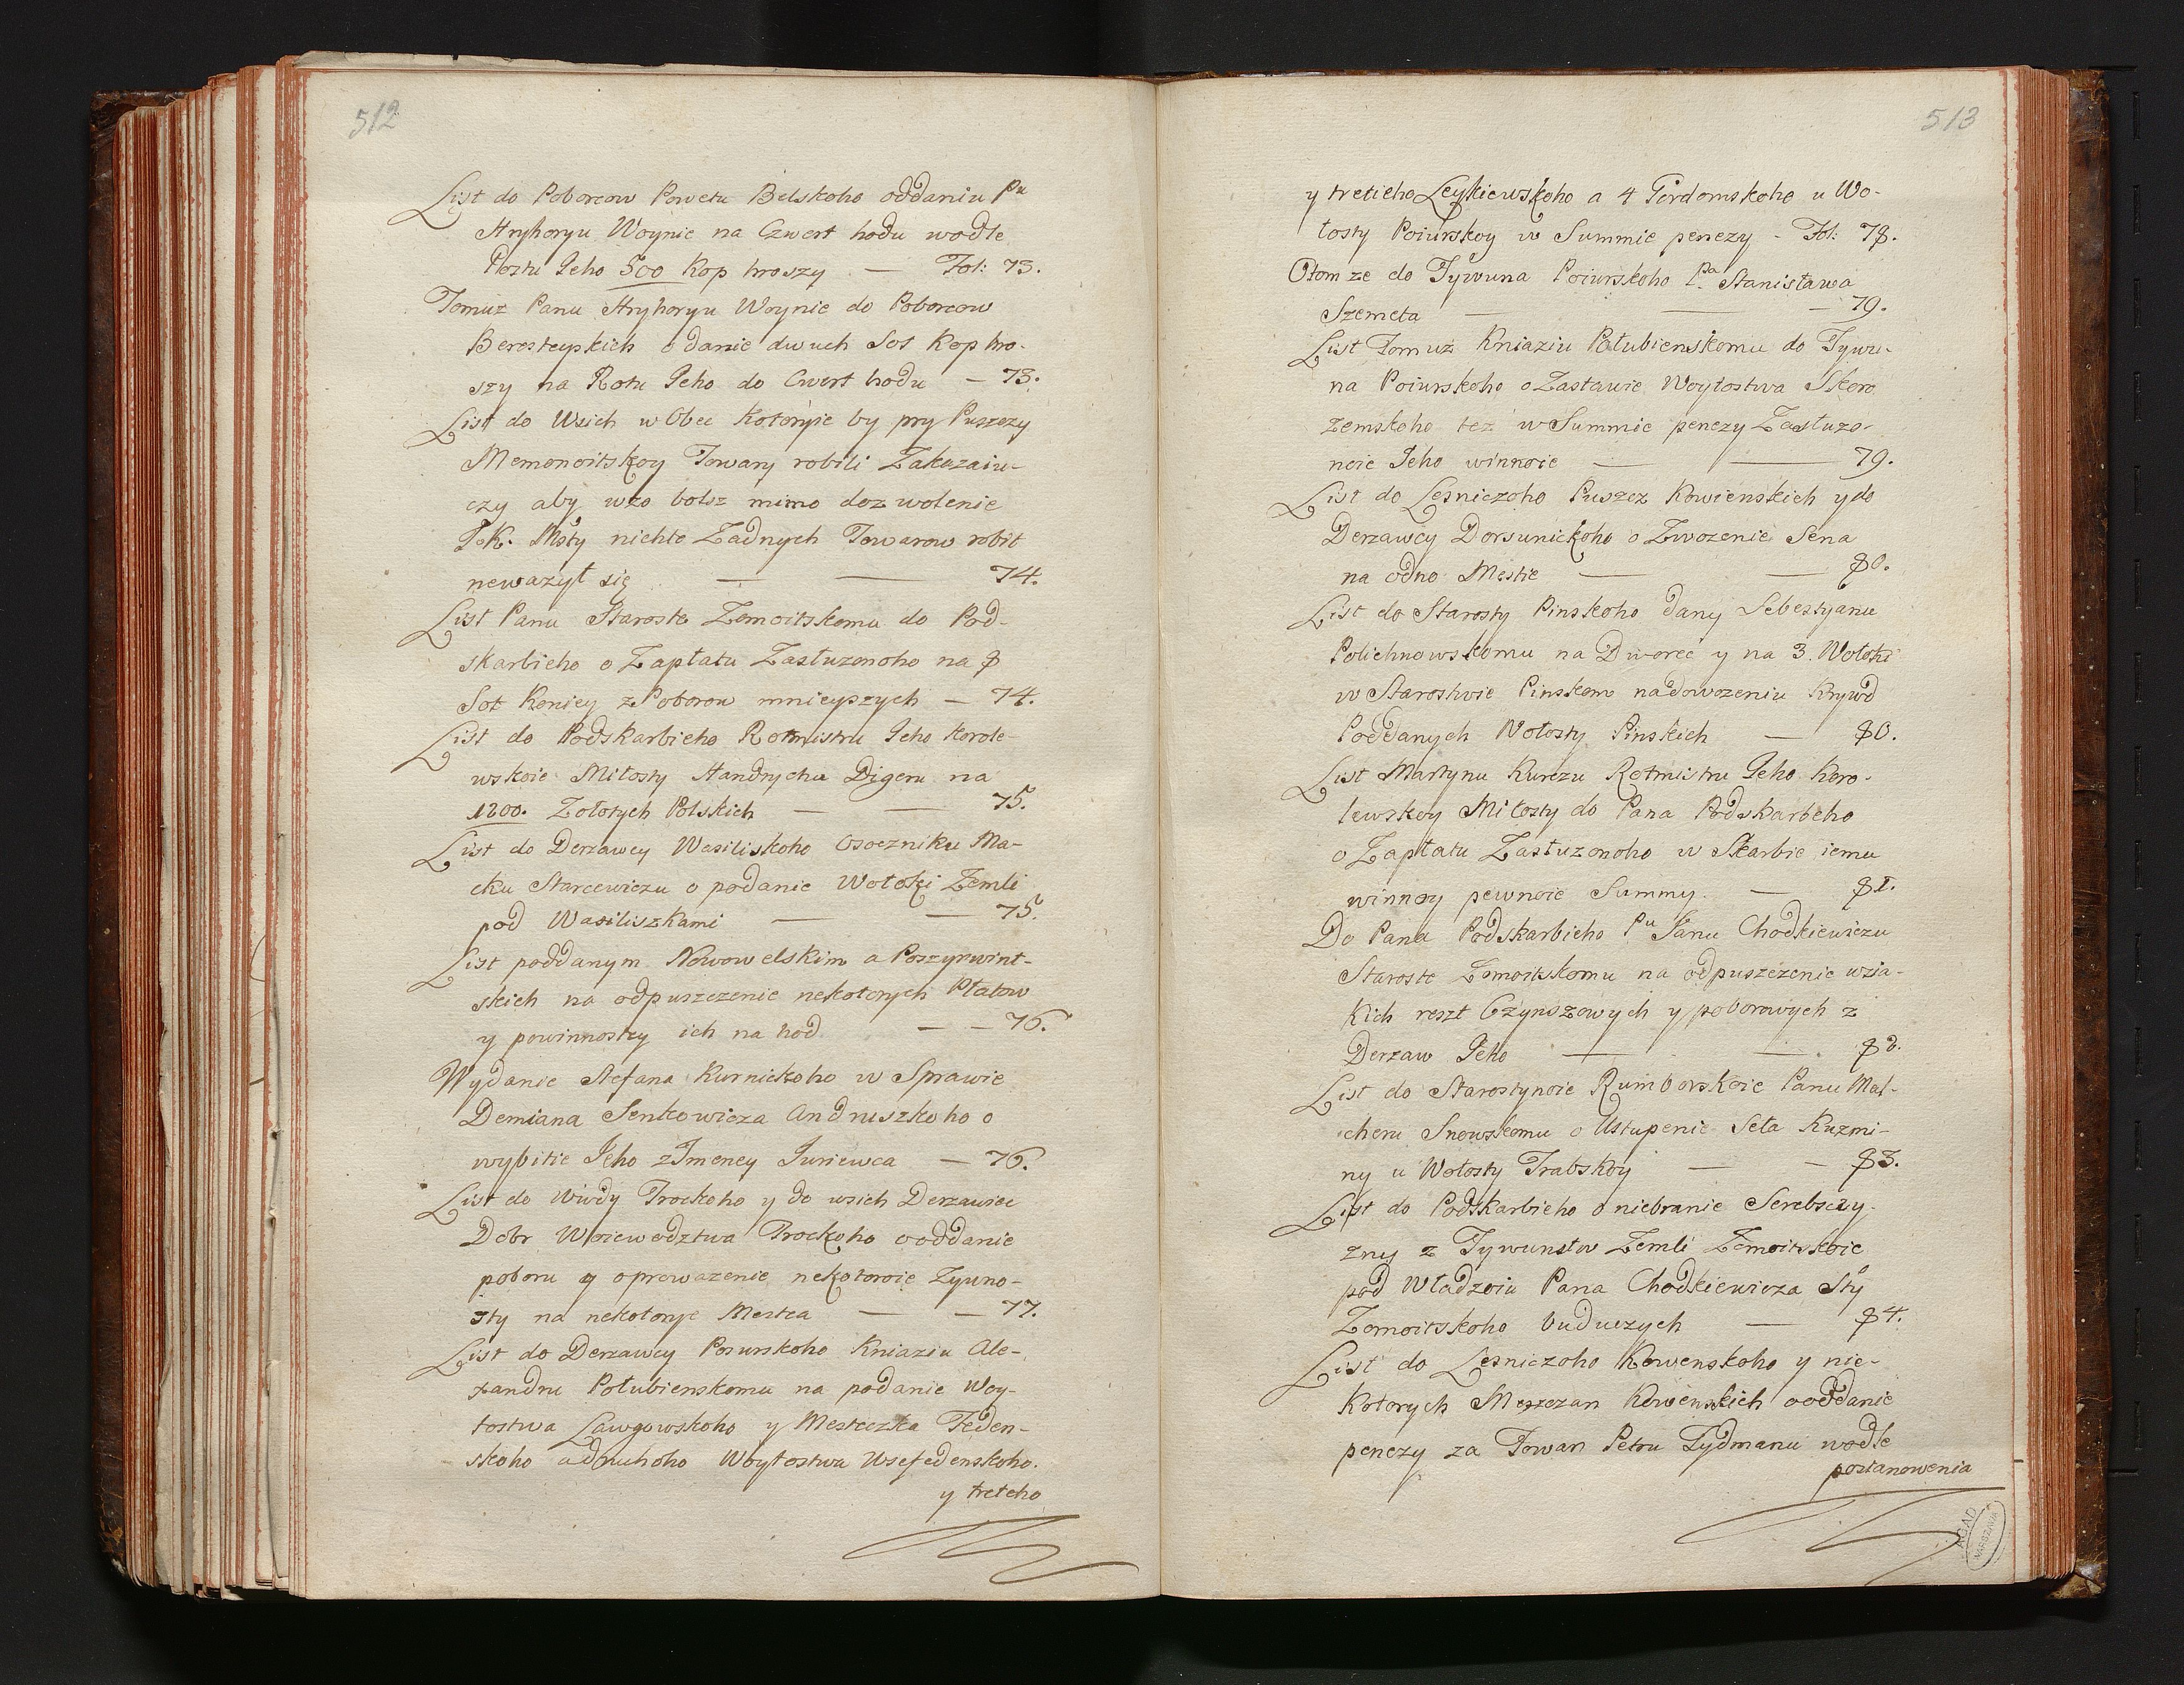 512
List do Poborcow Powetu Belskoho oddaniu Pu
Hryhoryu Woynie na Czwert hodu wodle
Postu Jeho 500 Kop hroszy — Fol: 73.
Tomuż Panu Hryhoryu Woynie do Poborcow
Beresteyskich o danie dwuch Sot Kop hro-
szy na Rotu Jeho do Cwert hodu — 73.
List do Wsich w Obec Kotoryie by pry Puszczy
Memonoitskoy Towary robili Zakazaiu-
czy aby wżo bolsz mimo dozwolenie
J. K. Msty nichto Żadnych Towarow robit
neważył się — — 74.
List Panu Staroste Żomoitskomu do Pod-
skarbieho o Zapłatu Zasłużonoho na 8
Sot Koniey z Poborow mnieyszych — 74.
List do Podskarbieho Rotmistru Jeho Korole-
wskoie Miłosty Handrychu Digeru na
1200. Zołotych Polskich — — 75.
List do Derżawcy Wasiliskoho Osoczniku Ma-
cku Starcewiczu o podanie Wołoki Zemli
pod Wasiliszkami — — 75.
List poddanym Nowowelskim a Poszyrwint-
skich na odpuszczenie nekotorych Płatow
y powinnostey ich na hod — — 76.
Wydanie Stefana Kurnickoho w Sprawie
Demiana Senkowicza Andruszkoho o
wybitie Jeho z Imeney Juriewca — 76.
List do Wwdy Trockoho y do wsich Derżawiec
Dobr Woiewodztwa Trockoho o oddanie
poboru y oproważenie nekotoroie Żywno-
sty na nekotoryie Mestca — — 77.
List do Derżawcy Poiurskoho Kniaziu Ale-
xandru Połubienskomu na podanie Woy-
tostwa Ławgowskoho y Mesteczka Teden-
skoho a druhoho Woytostwa Usefedenskoho.
y treteho
513
y tretieho Leykiewskoho a 4 Pordomskoho u Wo-
losty Poiurskoy w Summie penezy - Fol: 78.
O tom że do Tywuna Poiurskoho Pa. Stanisława
Szemeta — — — 79.
List Tomuż Kniaziu Połubienskomu do Tywu-
na Poiurskoho o Zastawie Woytostwa Skoro
zemskoho też w Summie penezy Zasłużo-
noie Jeho winnoie — — 79.
List do Lesniczoho Puszcz Kowienskich y do
Derżawcy Dorsunickoho o Zwożenie Sena
na odno Mestie — — 80.
List do Starosty Pinskoho dany Sebestyanu
Polichnowskomu na Dworec y na 3. Wołoki
w Starostwie Pinskom na dowożeniu Krywd
Poddanych Wołosty Pinskich — 80.
List Martynu Kurczu Rotmistru Jeho Koro-
lewskoy Miłosty do Pana Podskarbeho
o Zapłatu Zasłużonoho w Skarbie iemu
winnoy pewnoie Summy. — 81.
Do Pana Podskarbieho Pu Janu Chodkiewiczu
Staroste Żomoitskomu na odpuszczenie wsia-
kich reszt Czynszowych y poborowych z
Derżaw Jeho — — 82.
List do Starostynoie Rumborskoie Panu Mal-
cheru Snowskomu o Ustupenie Sela Kuzmi-
ny u Wołosty Trabskoy — — 83.
List do Podskarbieho o niebranie Serebszczy-
zny z Tywunstw Zemli Żomoitskoie
pod Władzoiu Pana Chodkiewicza Sty
Żomoitskoho buduczych — 84.
List do Lesniczoho Kowenskoho y nie-
kotorych Meszczan Kowenskich o oddanie
penezy za Towar Petru Tydmanu wodle
postanowenia
AGAD
WARSZAWA